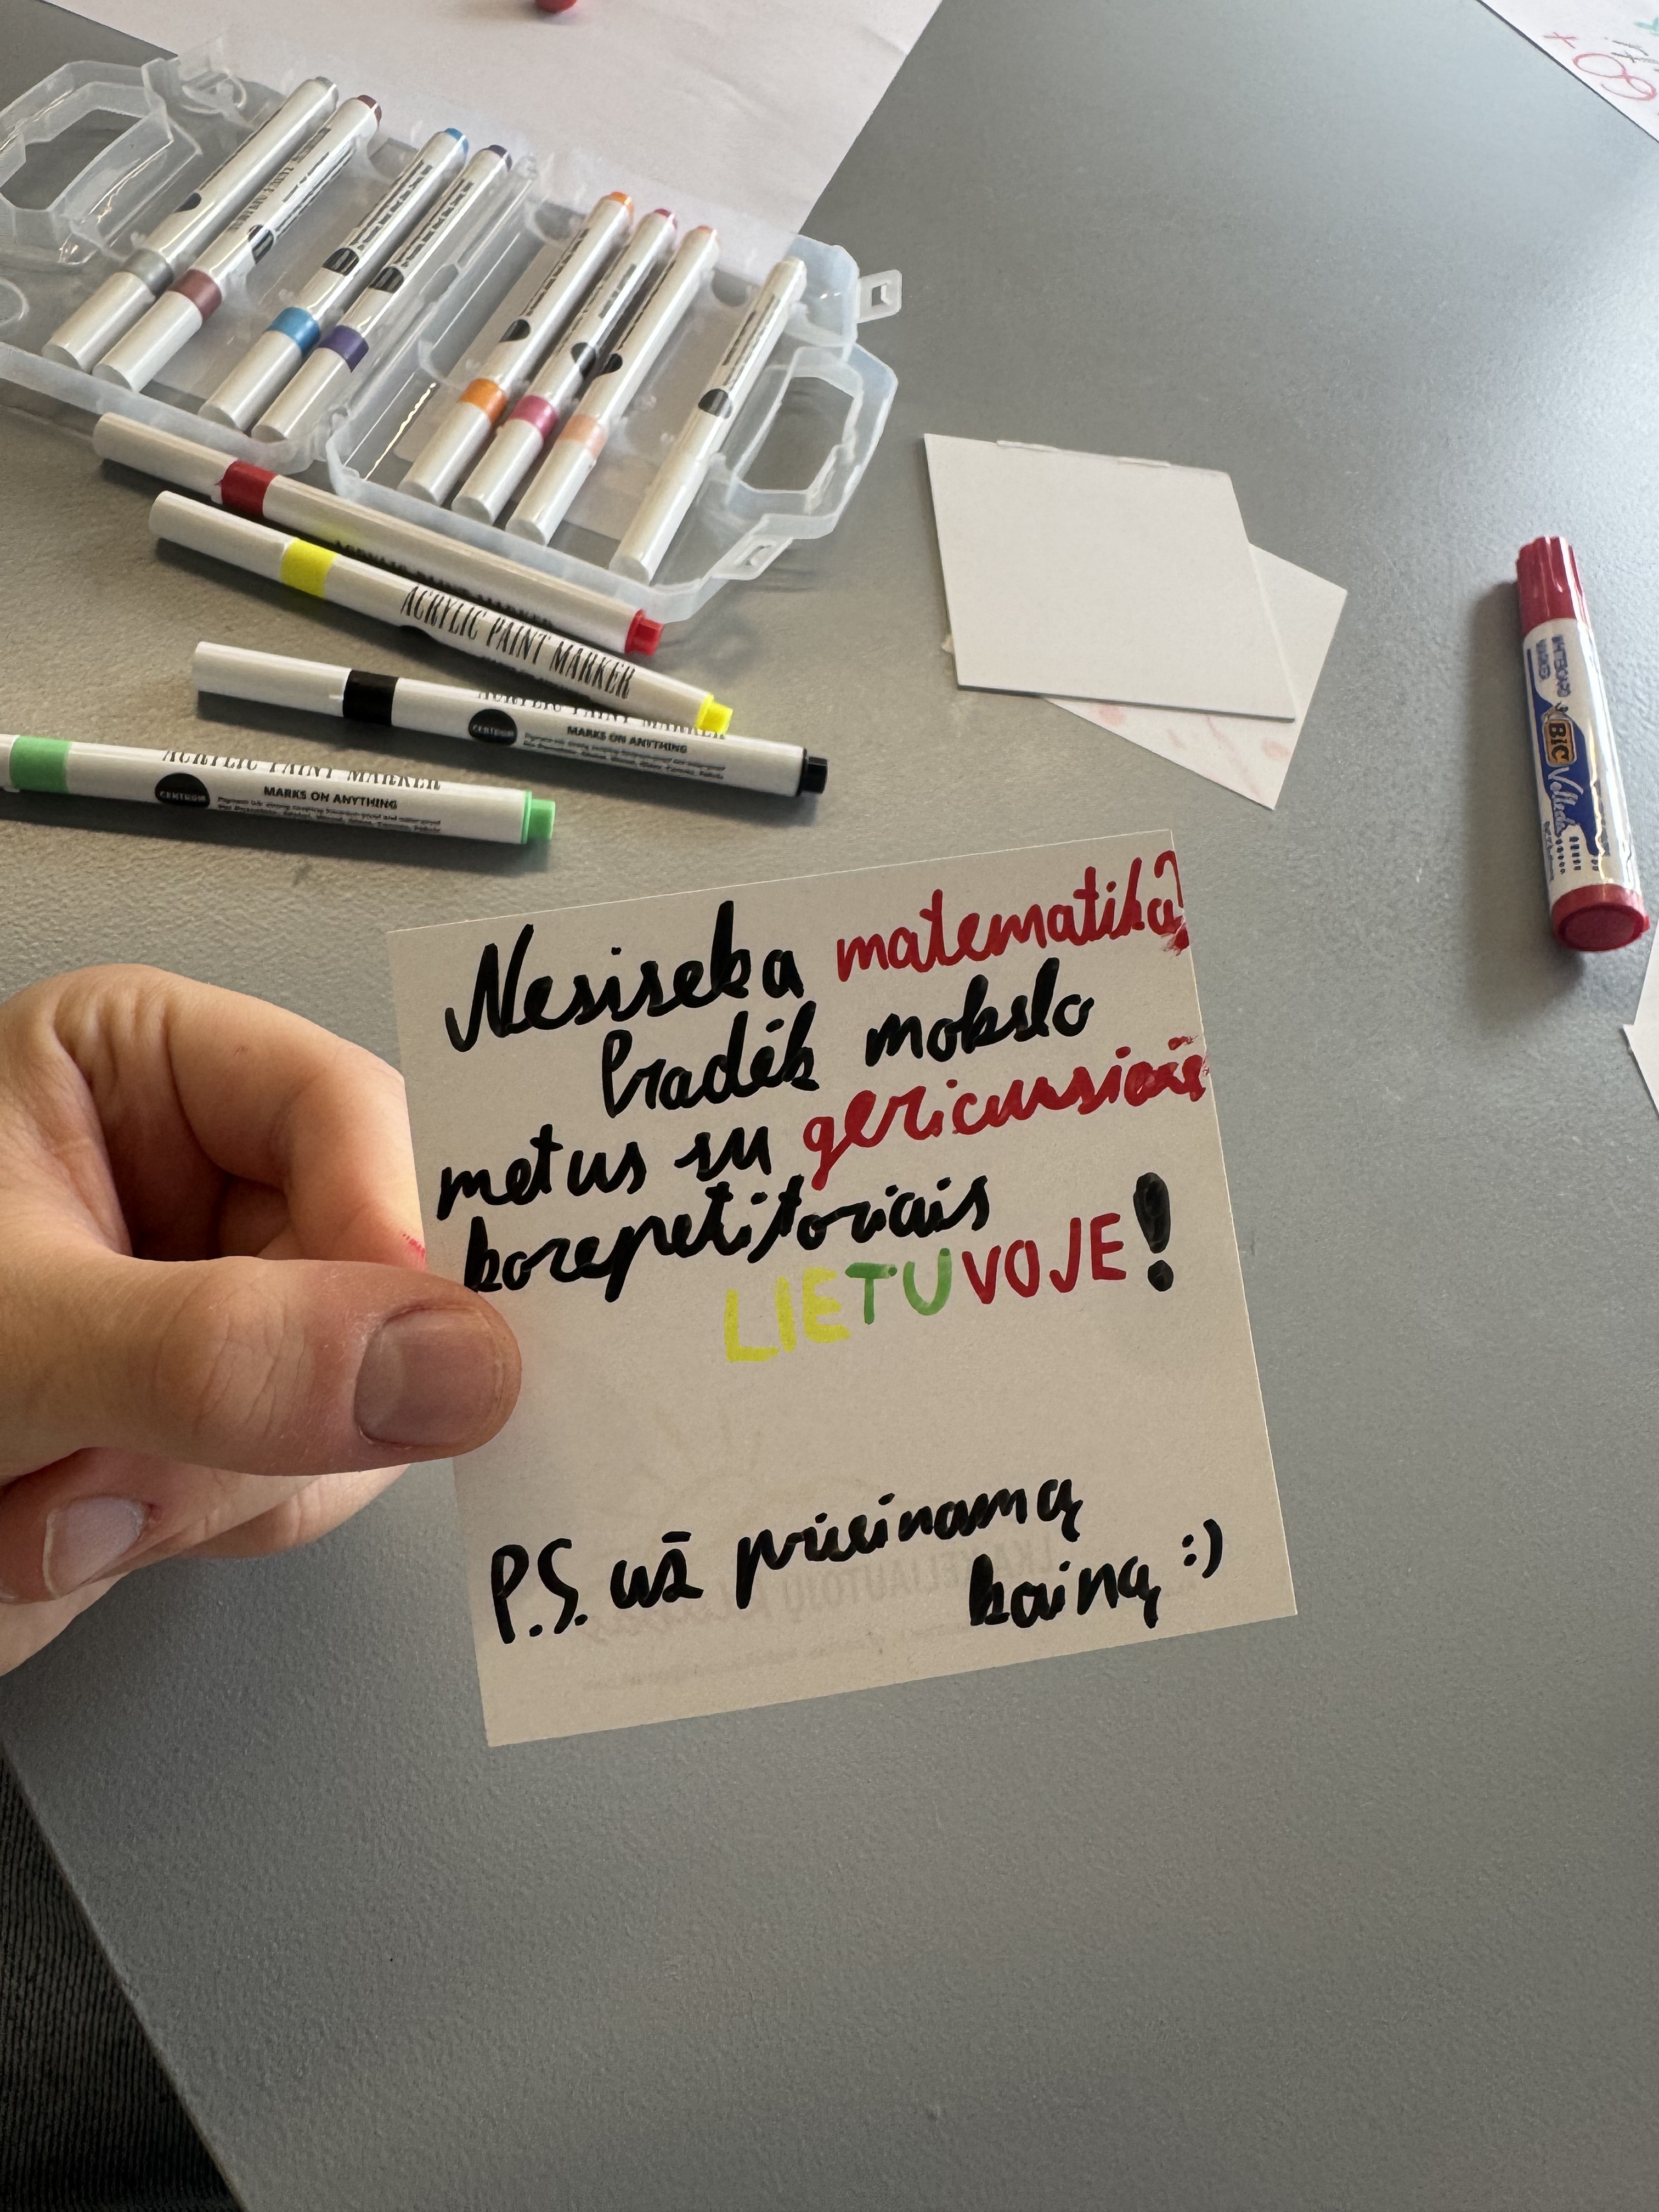 ACRYLIC PAINT MARKER
ACRYLIC PAINT MARKER
CENTRUM
MARKS ON ANYTHING
ACRYLIC PAINT MARKER
CENTRUM
MARKS ON ANYTHING
WHITEBOARD
MARKER
BIC
Velleda
Nesiseka matematika?
Pradėk mokslo
metus su geriausiais
korepetitoriais
LIETUVOJE!
P.S. už prieinamą
kainą :)